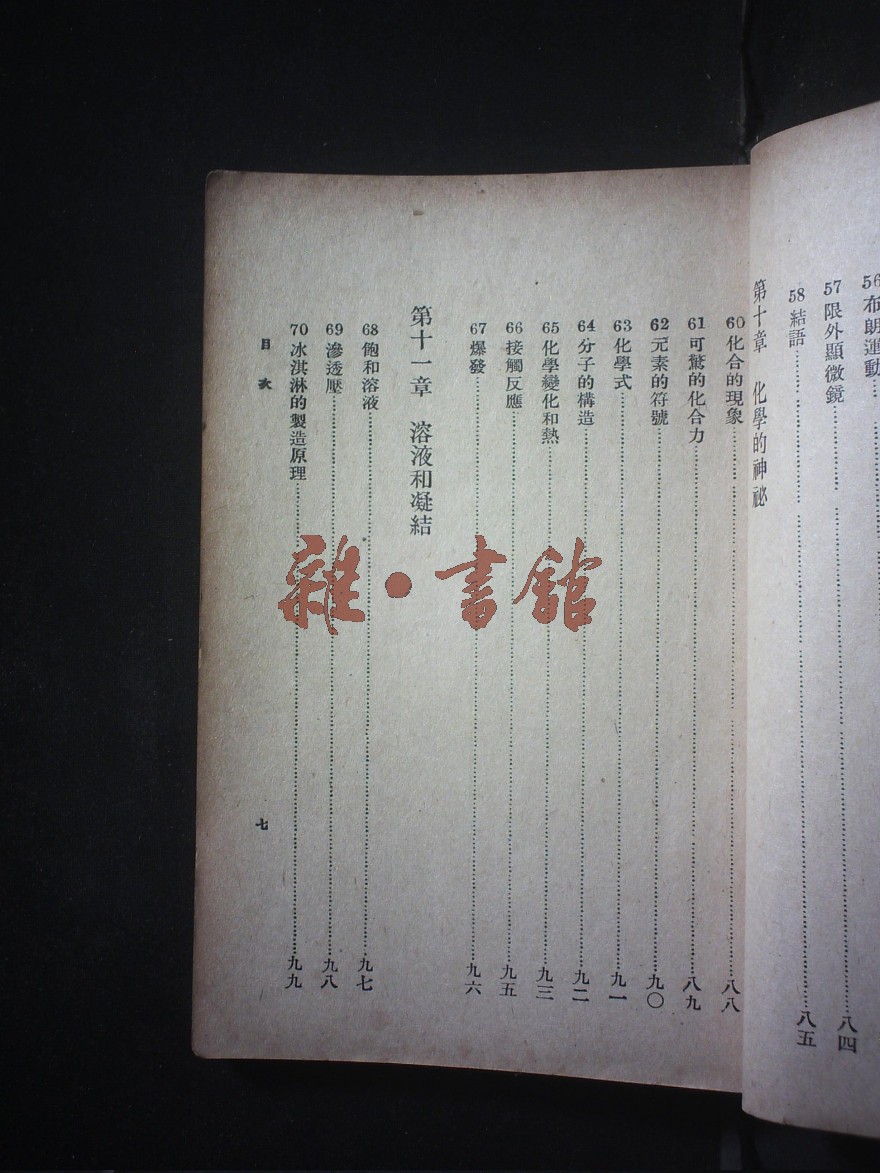 56布朗運動
57限外顯微鏡……八四
58結語……八五
第十章 化學的神祕
60化合的現象……八八
61可驚的化合力……八九
62元素的符號……九〇
63化學式……九一
64分子的構造……九二
65化學變化和熱……九三
66接觸反應……九五
67爆發……九六
第十一章 溶液和凝結
68飽和溶液……九七
69滲透壓……九八
70冰淇淋的製造原理……九九
目次
七
雜·書館